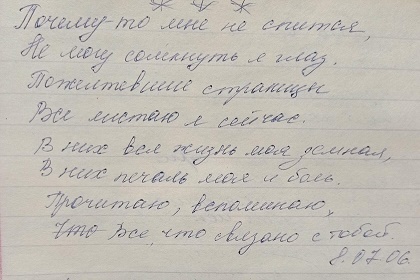 * * *
Почему-то мне не спится,
Не могу сомкнуть я глаз.
Пожелтевшие страницы
Все листаю я сейчас.
В них вся жизнь моя земная,
В них печаль моя и боль.
Прочитаю, вспоминаю,
Что Все, что связано с тобой.
8.07.06.